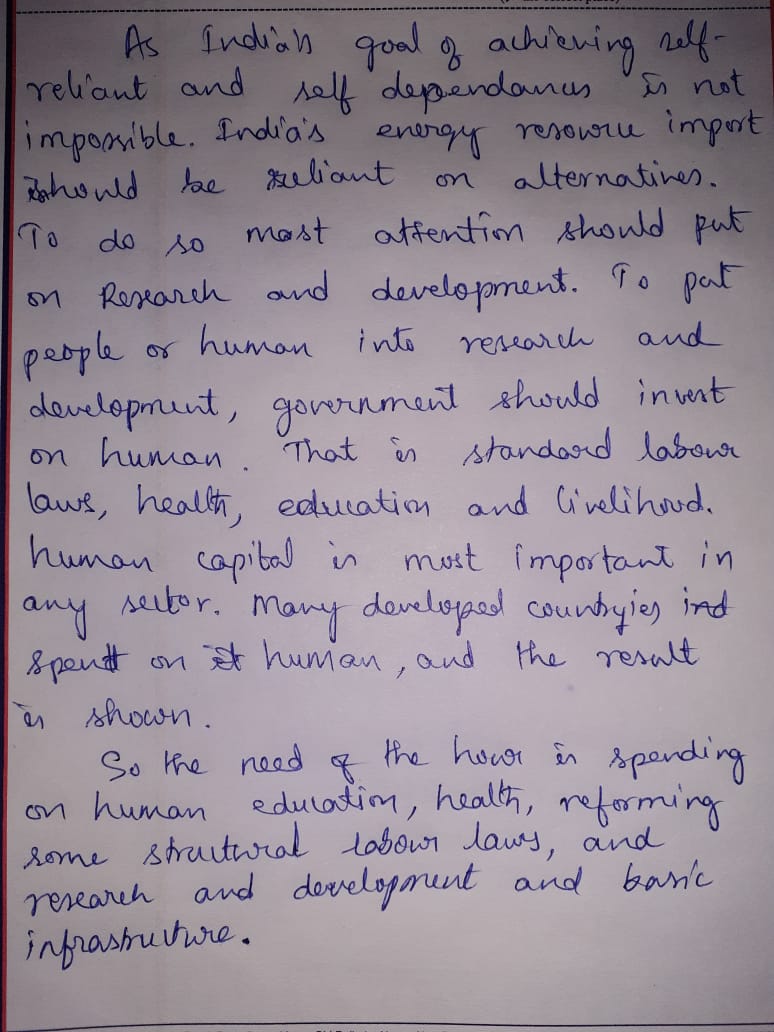 As India's goal of achieving self-
reliant and self dependance is not
impossible. India's energy resource import
should be reliant on alternatives.
To do so most attention should put
on Research and development. To put
people or human into research and
development, government should invest
on human. That is standard labour
laws, health, education and livelihood.
human capital is most important in
any sector. Many developed countryies
spent on human, and the result
is shown.
So the need of the hour is spending
on human education, health, reforming
some structural labour laws, and
research and development and basic
infrastructure.